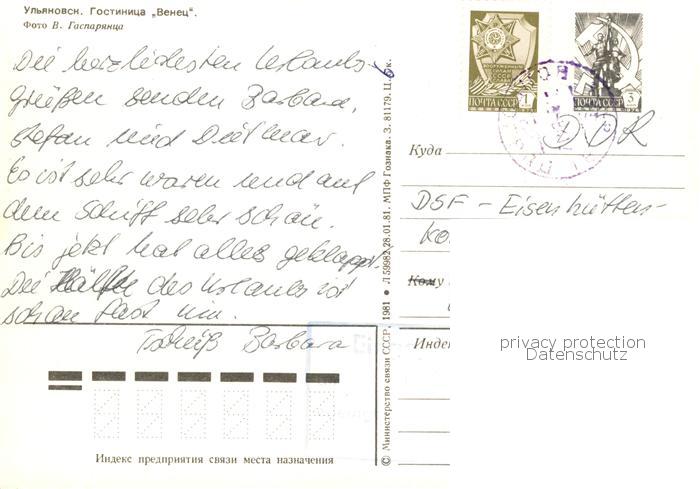 Ульяновск. Гостиница „Венец“.
Фото В. Гаспарянца
Die herzlichsten Urlaubs-
grüßen senden Barbara,
Stefan und Dietmar.
Es ist sehr warm und auf
dem Schiff sehr schön.
Bis jetzt hat alles geklappt.
Die Hälfte des Urlaubs ist
schon fast um.
Tschüß Barbara
Индекс предприятия связи места назначения
© Министерство связи СССР. 1981 ● Л 59982. 28.01.81. МПФ Гознака. З. 81179. Ц. к.
ПОЧТА СССР 1
ПОЧТА СССР 3
DDR
Куда
DSF – Eisenhütten-
Кому
Индекс
privacy protection
Datenschutz